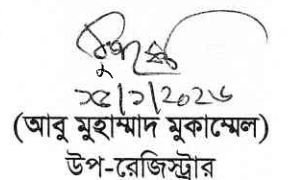 ১৫/১/২০২৬
(আবু মুহাম্মাদ মুকাম্মেল)
উপ-রেজিস্ট্রার